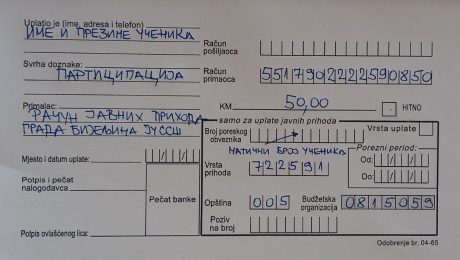 Uplatio je (ime, adresa i telefon)
ИМЕ И ПРЕЗИМЕ УЧЕНИКА
Račun pošiljaoca
Svrha doznake:
ПАРТИЦИПАЦИЈА
Račun primaoca
5517902222590850
Primalac:
РАЧУН ЈАВНИХ ПРИХОДА
ГРАДА БИЈЕЉИНА ЈУ ССШ
KM
50,00
HITNO
samo za uplate javnih prihoda
Broj poreskog obveznika
МАТИЧНИ БРОЈ УЧЕНИКА
Vrsta uplate
Mjesto i datum uplate:
Vrsta prihoda
722591
Porezni period:
Od:
Do:
Potpis i pečat nalogodavca
Pečat banke
Opština
005
Budžetska organizacija
0815059
Poziv na broj
Potpis ovlašćenog lica:
Odobrenje br. 04-65